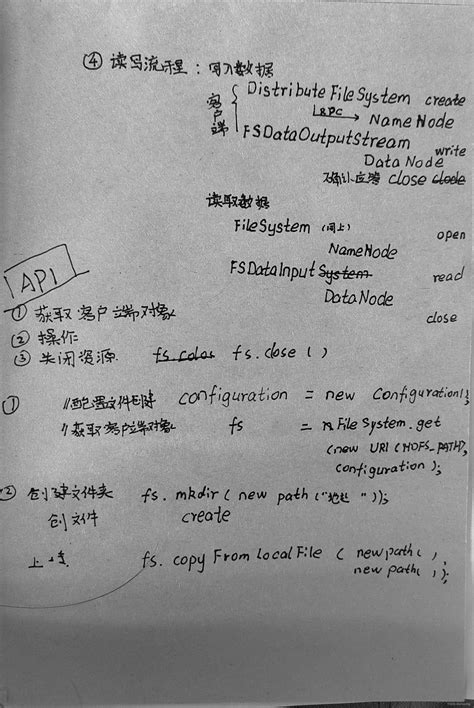 ④ 读写流程：写入数据
客户端 { Distribute FileSystem create
RPC → NameNode
FSDataOutputStream write
DataNode
close
读取数据
FileSystem (同上) open
NameNode
FSDataInput System read
DataNode
close
API
① 获取客户端对象
② 操作
③ 关闭资源 fs.close ( )
① //配置文件创建 configuration = new Configuration();
//获取客户端对象 fs = FileSystem.get
(new URI (HDFS_PATH),
configuration );
② 创建文件夹 fs. mkdir ( new path ("地址 "));
创文件 create
上传 fs. copy From Local File ( new path ( ),
new path ( ));